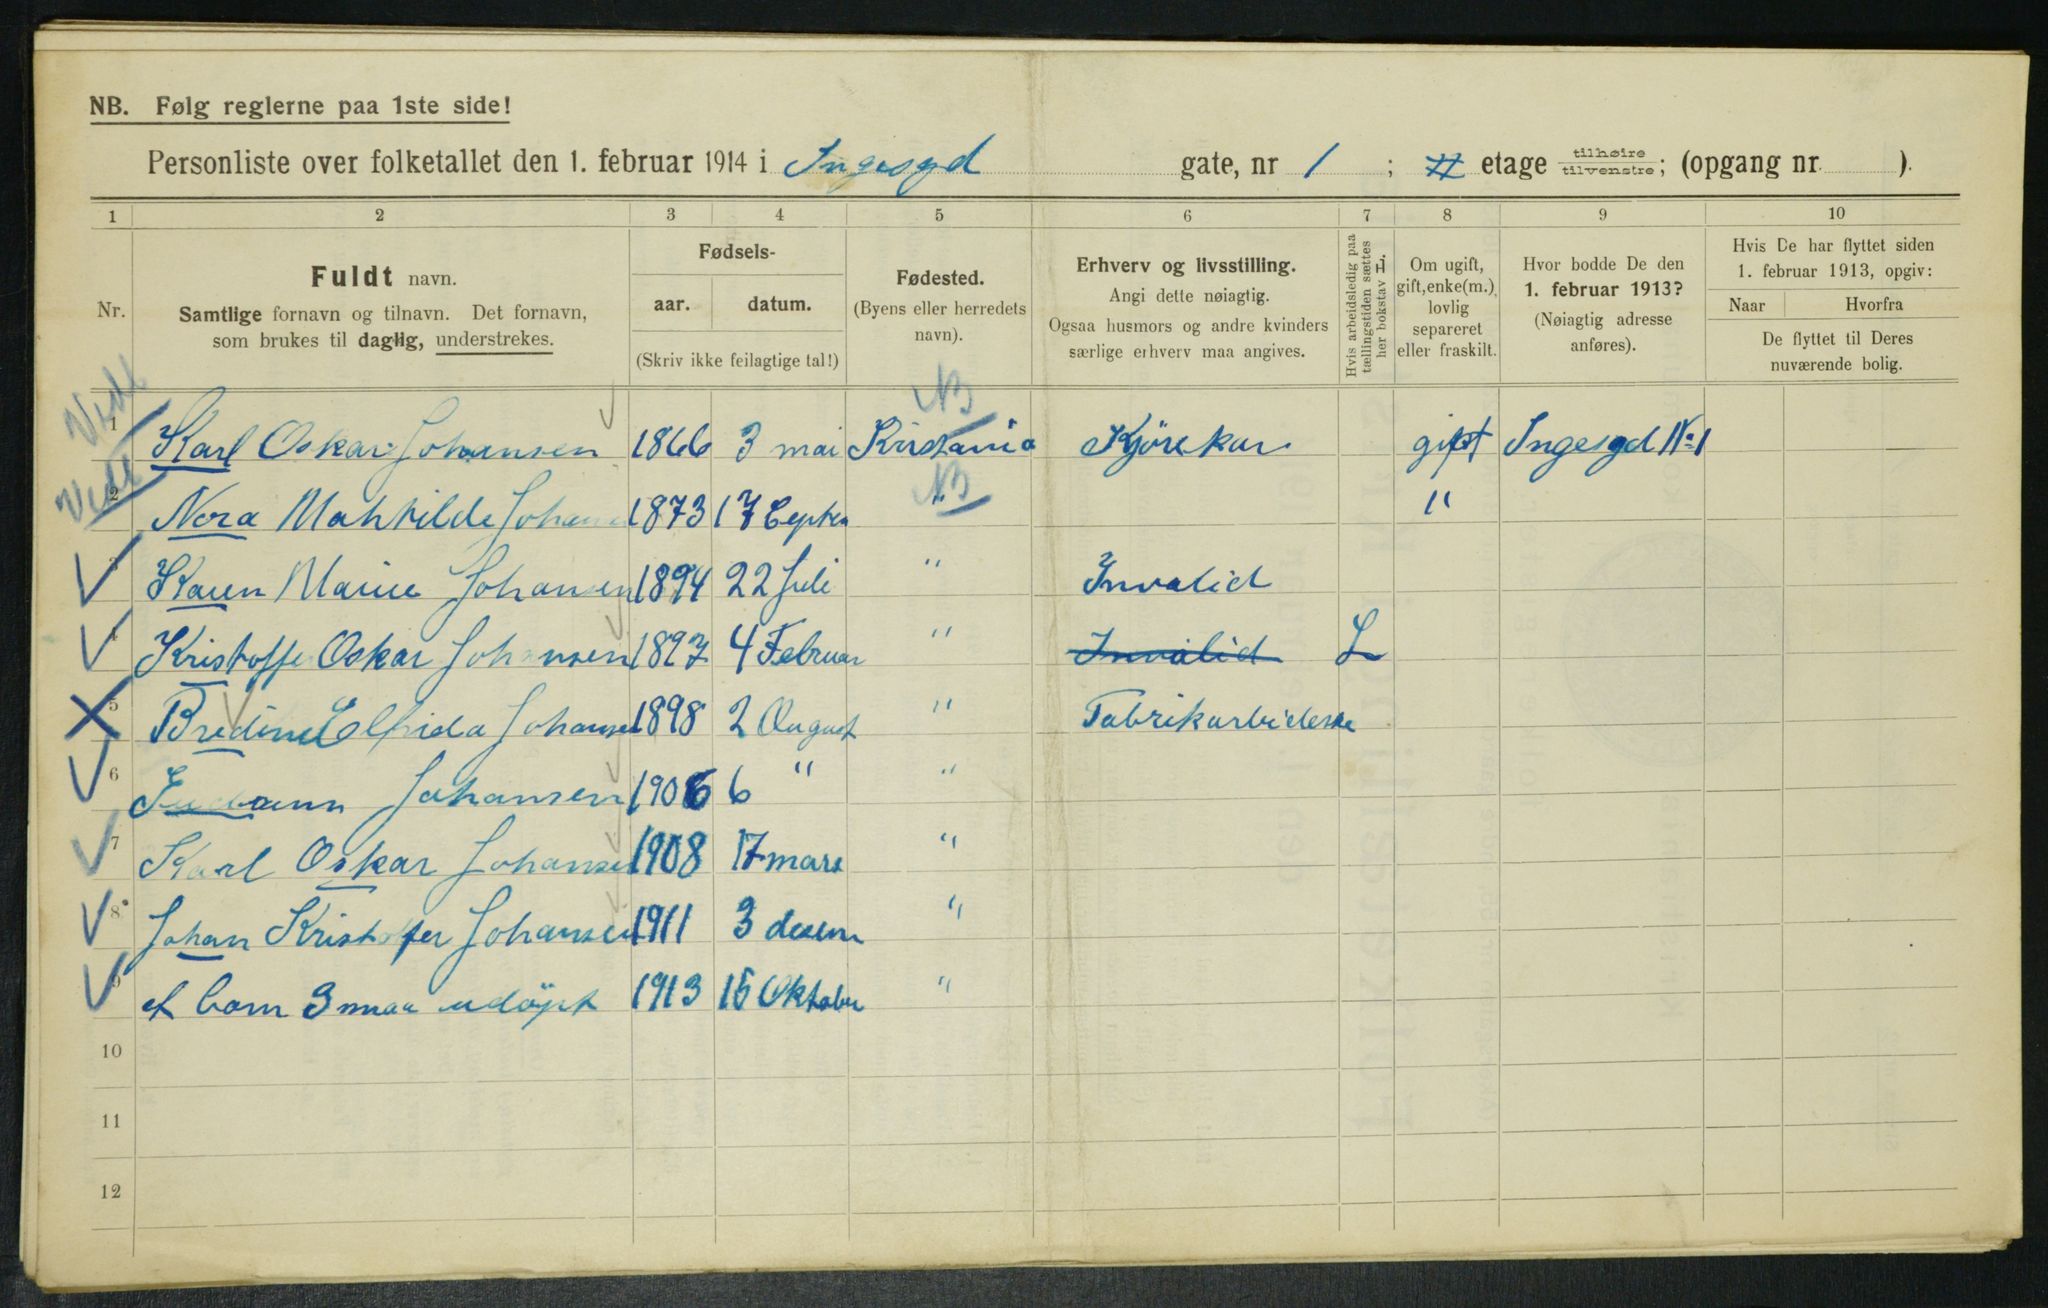 NB. Følg reglerne paa 1ste side!
Personliste over folketallet den 1. februar 1914 i Ingesgd gate, nr 1 ; etage tilhøire tilvenstre; (opgang nr. ).
1 2 3 4 5 6 7 8 9 10
Nr.
Fuldt navn.
Samtlige fornavn og tilnavn. Det fornavn,
som brukes til daglig, understrekes.
Fødsels-
aar. datum.
(Skriv ikke feilagtige tal!)
Fødested.
(Byens eller herredets
navn).
Erhverv og livsstilling.
Angi dette nøiagtig.
Ogsaa husmors og andre kvinders
særlige erhverv maa angives.
Hvis arbeidsledig paa
tællingstiden sættes
her bokstav L.
Om ugift,
gift, enke(m.),
lovlig
separeret
eller fraskilt.
Hvor bodde De den
1. februar 1913?
(Nøiagtig adresse
anføres).
Hvis De har flyttet siden
1. februar 1913, opgiv:
Naar Hvorfra
De flyttet til Deres
nuværende bolig.
NB
1 Karl Oskar Johansen 1866 3 mai Kristania Kjörekar gift Ingesgd No 1
NB
2 Nora Mahtilde Johansen 1873 17 Septem " "
3 Karen Marie Johansen 1894 22 Juli " Invalid
4 Kristoffer Oskar Johansen 1897 4 Februar " Invalid L
5 Bredine Elfrida Johansen 1898 2 August " Fabrikarbideske
6 Johansen 1906 6 " "
7 Karl Oskar Johansen 1908 17 mars "
8 Johan Kristoffer Johansen 1911 3 desem "
9 et barn 3 maa udöpt 1913 15 Oktober "
10
11
12